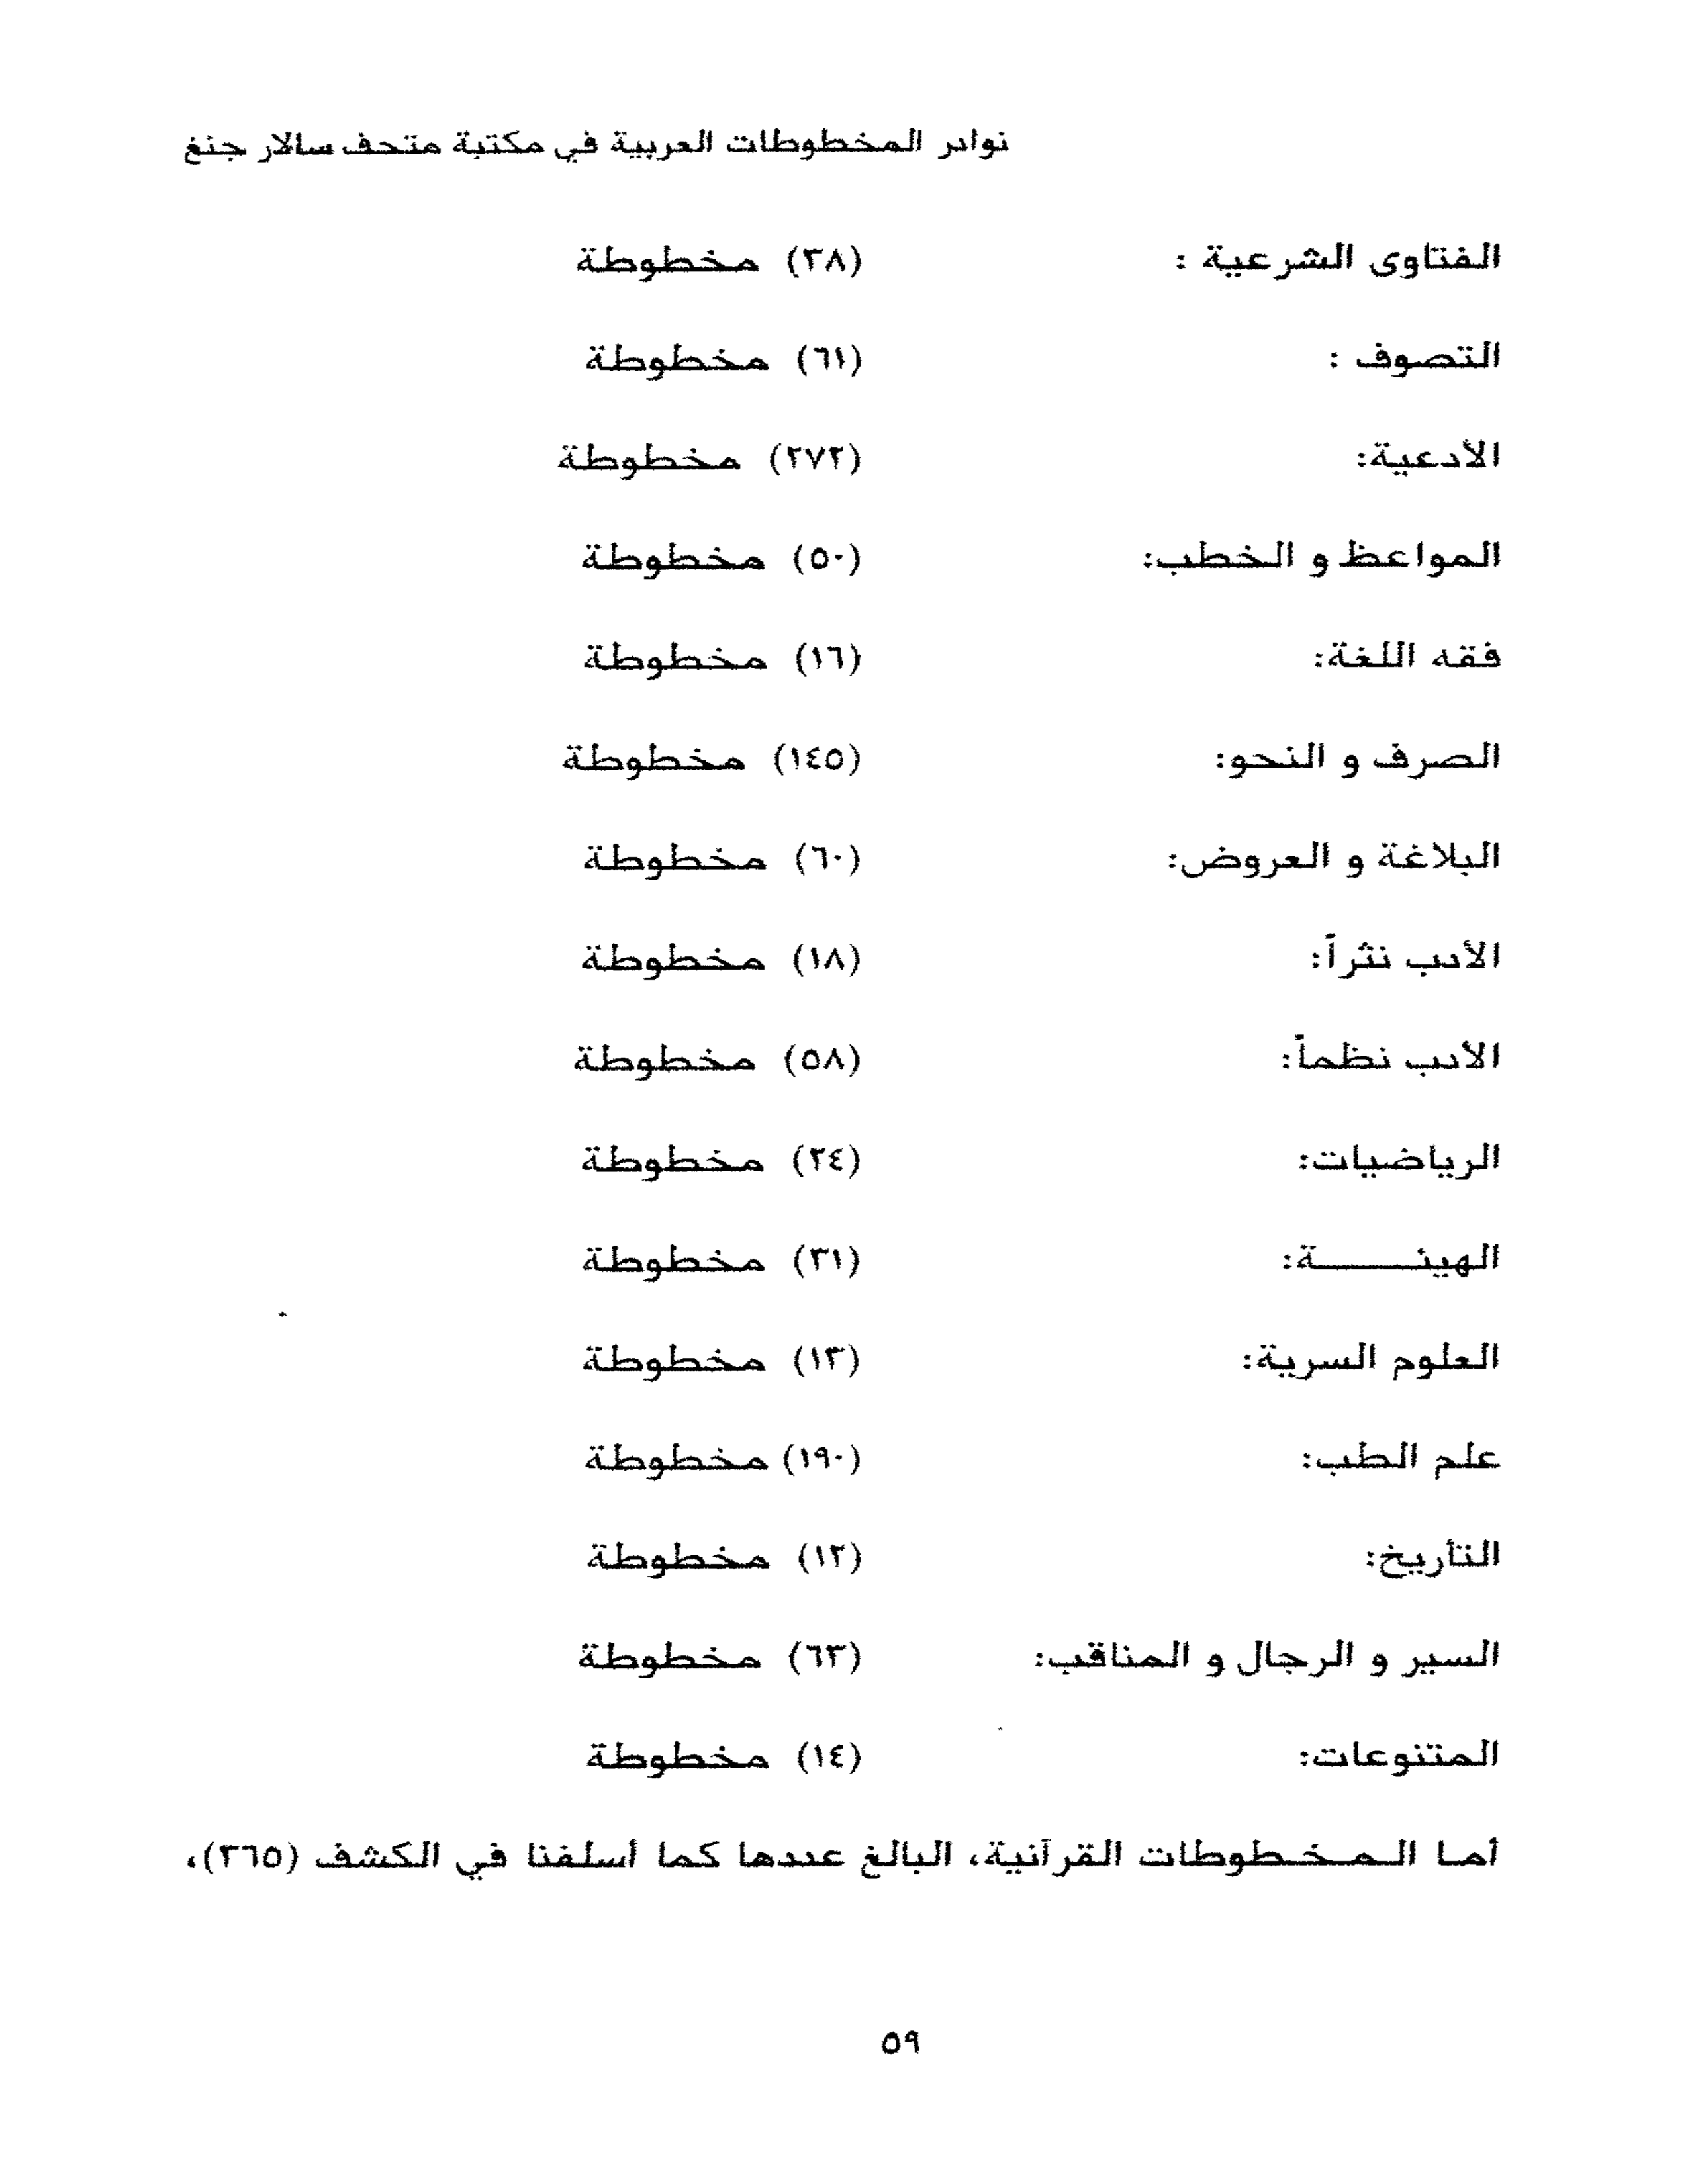 نوادر المخطوطات العربية في مكتبة متحف سالار جنغ
الفتاوى الشرعية : (٣٨) مخطوطة
التصوف : (٦١) مخطوطة
الأدعية: (٢٧٢) مخطوطة
المواعظ و الخطب: (٥٠) مخطوطة
فقه اللغة: (١٦) مخطوطة
الصرف و النحو: (١٤٥) مخطوطة
البلاغة و العروض: (٦٠) مخطوطة
الأدب نثراً: (١٨) مخطوطة
الأدب نظماً: (٥٨) مخطوطة
الرياضيات: (٢٤) مخطوطة
الهيئـــــــة: (٣١) مخطوطة
العلوم السرية: (١٣) مخطوطة
علم الطب: (١٩٠) مخطوطة
التأريخ: (١٢) مخطوطة
السير و الرجال و المناقب: (٦٣) مخطوطة
المتنوعات: (١٤) مخطوطة
أما الـمـخـطوطات القرآنية، البالغ عددها كما أسلفنا في الكشف (٣٦٥)،
٥٩